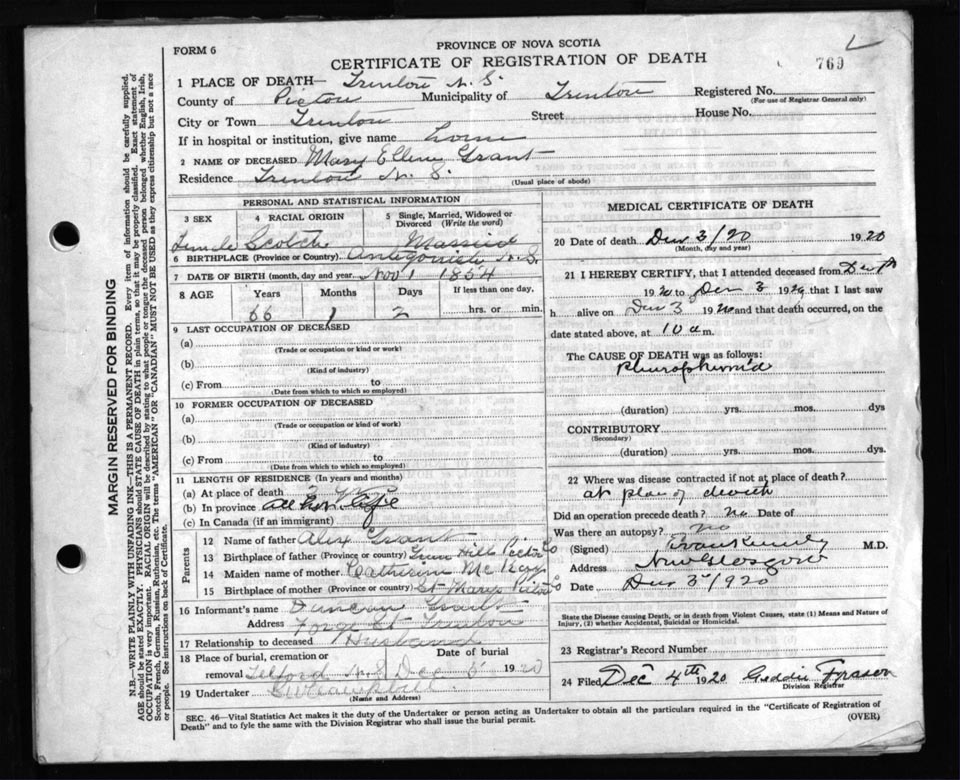 PROVINCE OF NOVA SCOTIA
FORM 6
CERTIFICATE OF REGISTRATION OF DEATH
769
1 PLACE OF DEATH— Trenton N.S.
County of Pictou Municipality of Trenton Registered No.
(For use of Registrar General only)
City or Town Trenton Street House No.
If in hospital or institution, give name home
2 NAME OF DECEASED Mary Ellen Grant
Residence Trenton N.S.
(Usual place of abode)
PERSONAL AND STATISTICAL INFORMATION
3 SEX 4 RACIAL ORIGIN 5 Single, Married, Widowed or Divorced (Write the word)
Female Scotch Married
6 BIRTHPLACE (Province or Country) Antigonish N.S.
7 DATE OF BIRTH (month, day and year) Nov 1 1854
8 AGE Years Months Days If less than one day,
66 1 2 hrs. or min.
9 LAST OCCUPATION OF DECEASED
(a)
(Trade or occupation or kind or work)
(b)
(Kind of industry)
(c) From to
(Date from which to which so employed)
10 FORMER OCCUPATION OF DECEASED
(a)
(Trade or occupation or kind of work)
(b)
(Kind of industry)
(c) From to
(Date from which to which so employed)
11 LENGTH OF RESIDENCE (In years and months)
(a) At place of death
(b) In province all her life
(c) In Canada (if an immigrant)
Parents
12 Name of father Alex Grant
13 Birthplace of father (Province or country) Hills Pictou Co
14 Maiden name of mother Catherine McKay
15 Birthplace of mother (Province or country) St Marys Pictou Co
16 Informant's name Duncan Grant
Address Forge St Trenton
17 Relationship to deceased Husband
18 Place of burial, cremation or removal Date of burial
Telford N.S. Dec 5 1920
19 Undertaker
(Name and Address)
MEDICAL CERTIFICATE OF DEATH
20 Date of death Dec 3/20 1920
(Month, day and year)
21 I HEREBY CERTIFY, that I attended deceased from
1920 to Dec 3 1920 that I last saw
h alive on Dec 3 1920 and that death occurred, on the
date stated above, at 10 a m.
The CAUSE OF DEATH was as follows:
(duration) yrs. mos. dys
CONTRIBUTORY
(Secondary)
(duration) yrs. mos. dys
22 Where was disease contracted if not at place of death?
at place of death
Did an operation precede death? no Date of
Was there an autopsy? no
(Signed) Kennedy M.D.
Address New Glasgow
Date Dec 3/920
State the Disease Causing Death, or in death from Violent Causes, state (1) Means and Nature of Injury, (2) whether Accidental, Suicidal or Homicidal.
23 Registrar's Record Number
24 Filed Dec 4th 1920 Geddie Fraser
Division Registrar
SEC. 46—Vital Statistics Act makes it the duty of the Undertaker or person acting as Undertaker to obtain all the particulars required in the "Certificate of Registration of
Death" and to fyle the same with the Division Registrar who shall issue the burial permit. (OVER)
MARGIN RESERVED FOR BINDING
N.B.—WRITE PLAINLY WITH UNFADING INK—THIS IS A PERMANENT RECORD. Every item of information should be carefully supplied.
AGE should be stated EXACTLY. PHYSICIANS should STATE CAUSE OF DEATH in plain terms, so that it may be properly classified. Exact statement of
OCCUPATION is very important. RACIAL ORIGIN will be described by stating to what people or tongue the deceased person belonged whether English, Irish,
Scotch, French, German, Russian, Ruthenian, etc. The terms "AMERICAN" OR "CANADIAN" MUST NOT BE USED as they express citizenship but not a race
or people. See instructions on back of Certificate.